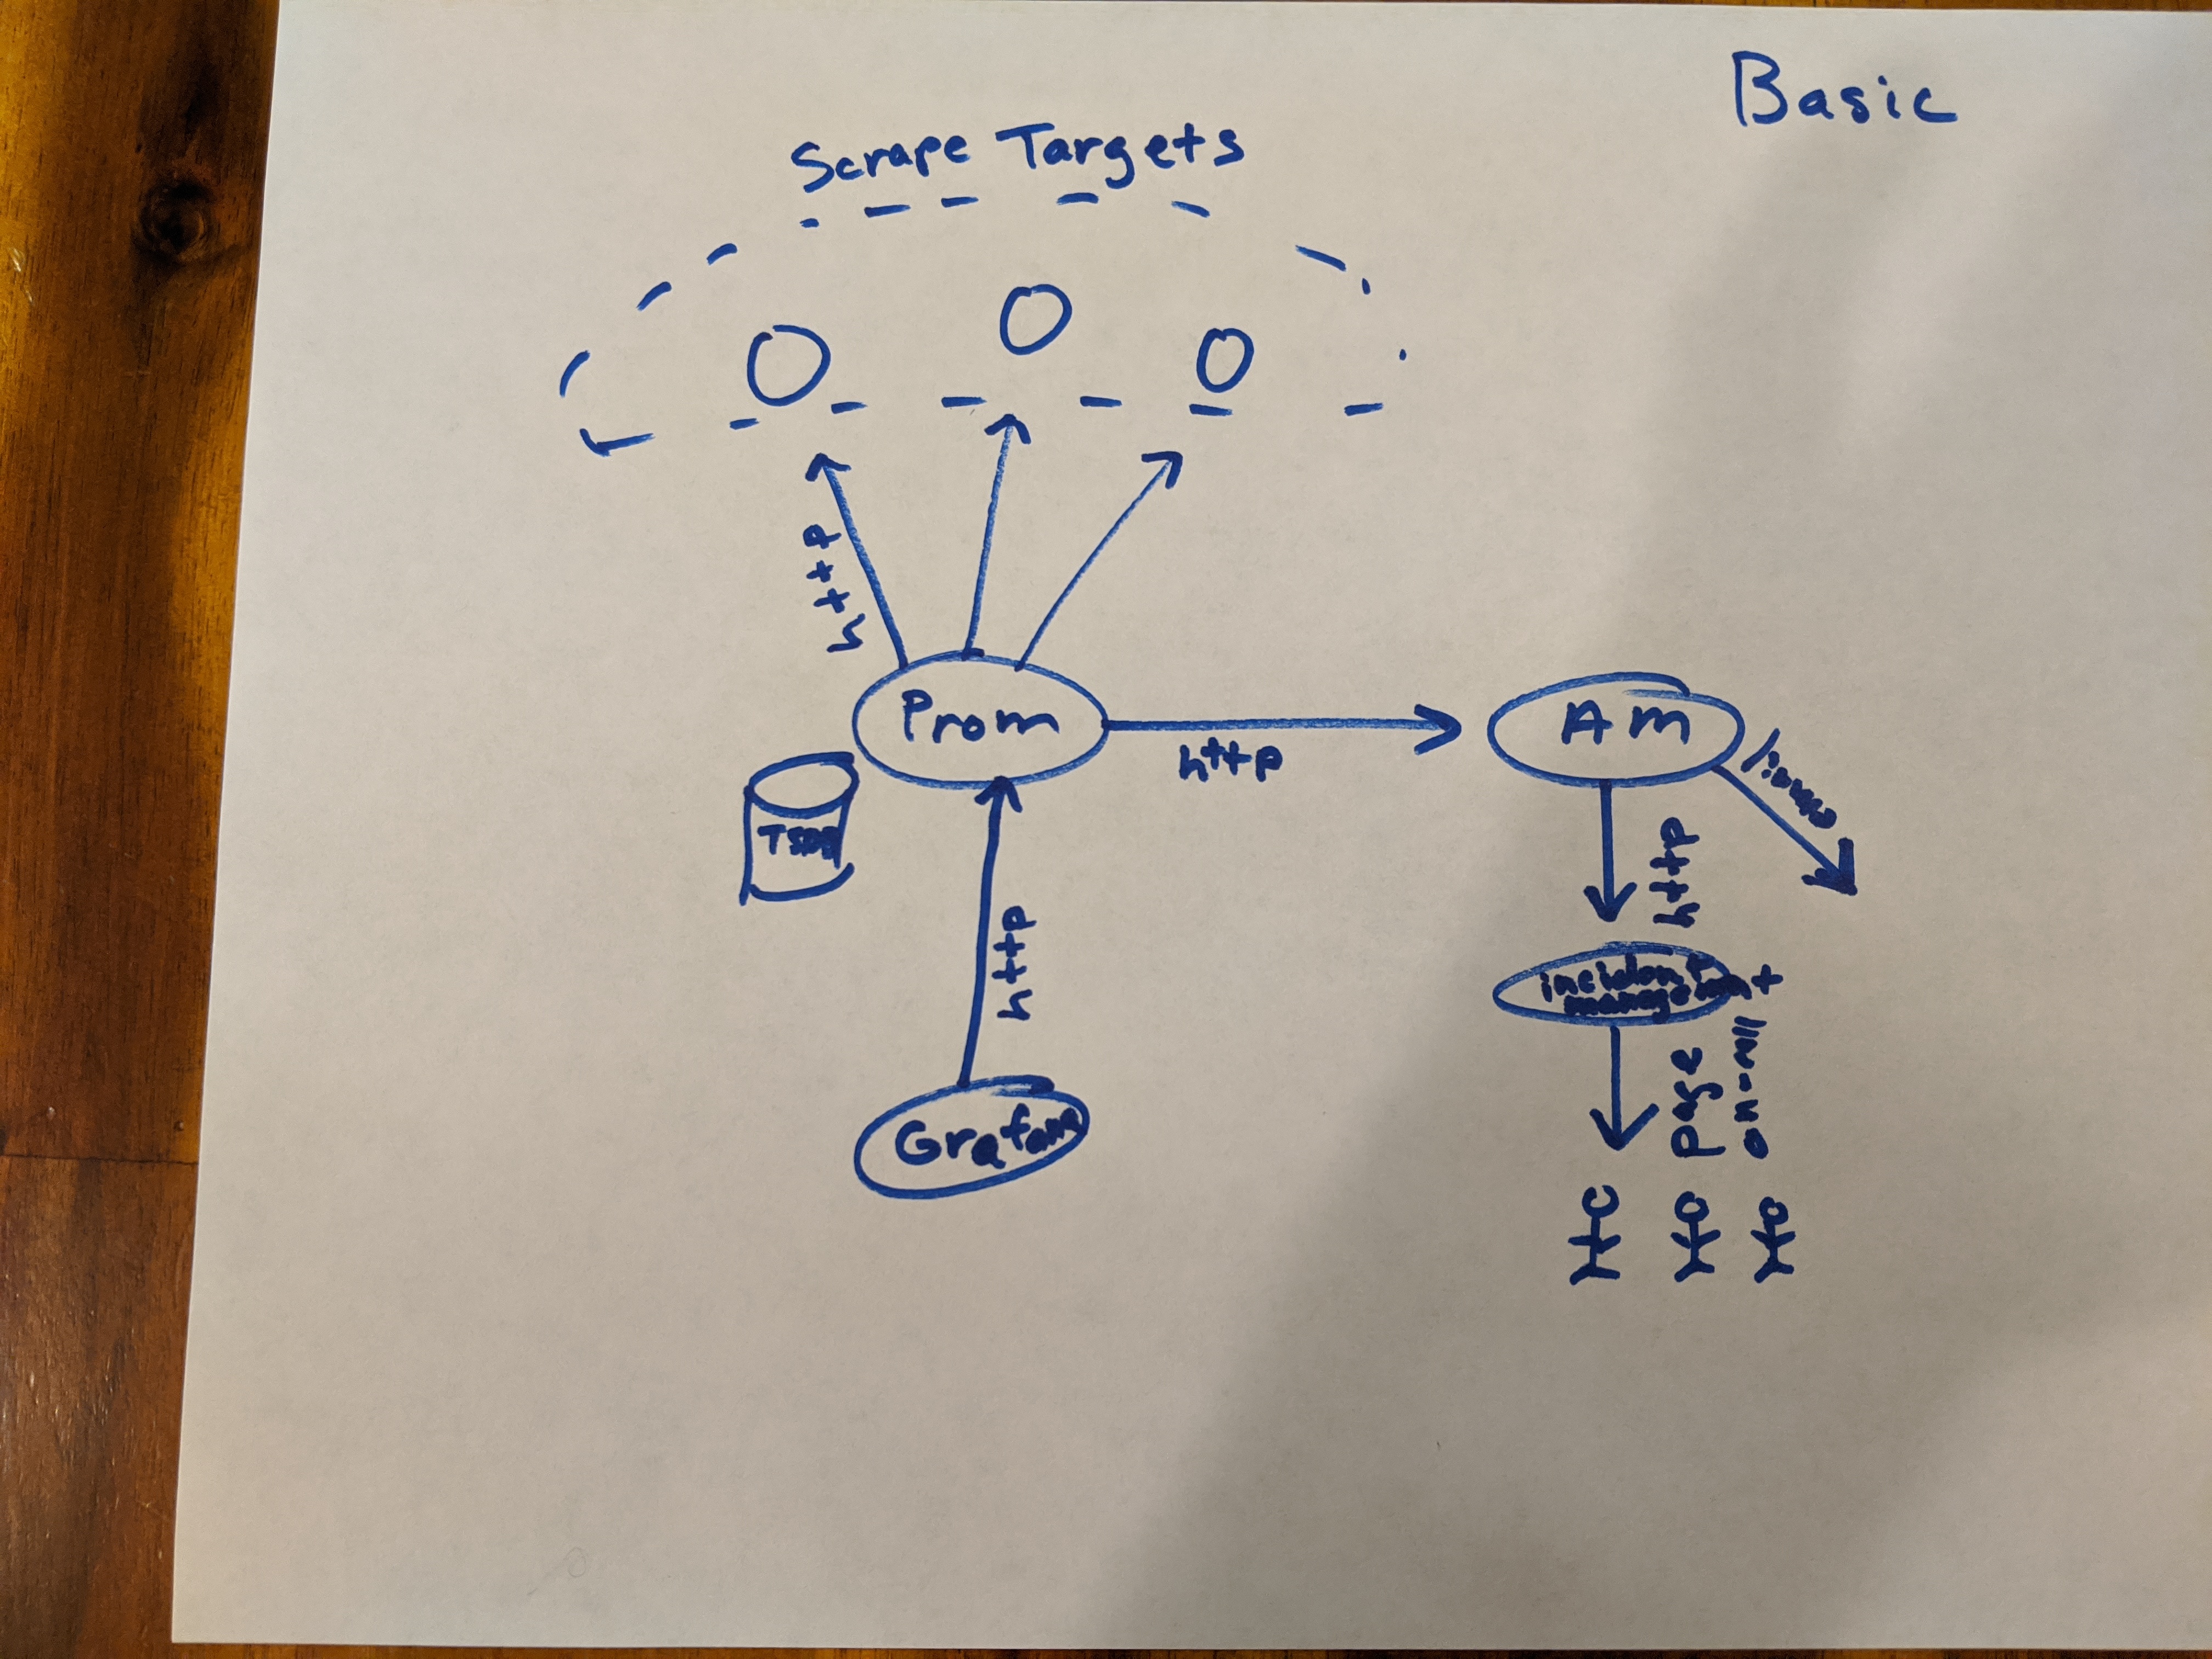 Basic
Scrape Targets
http
Prom
http
Am
TSDB
http
http
incident
management
Grafana
Page
on-call